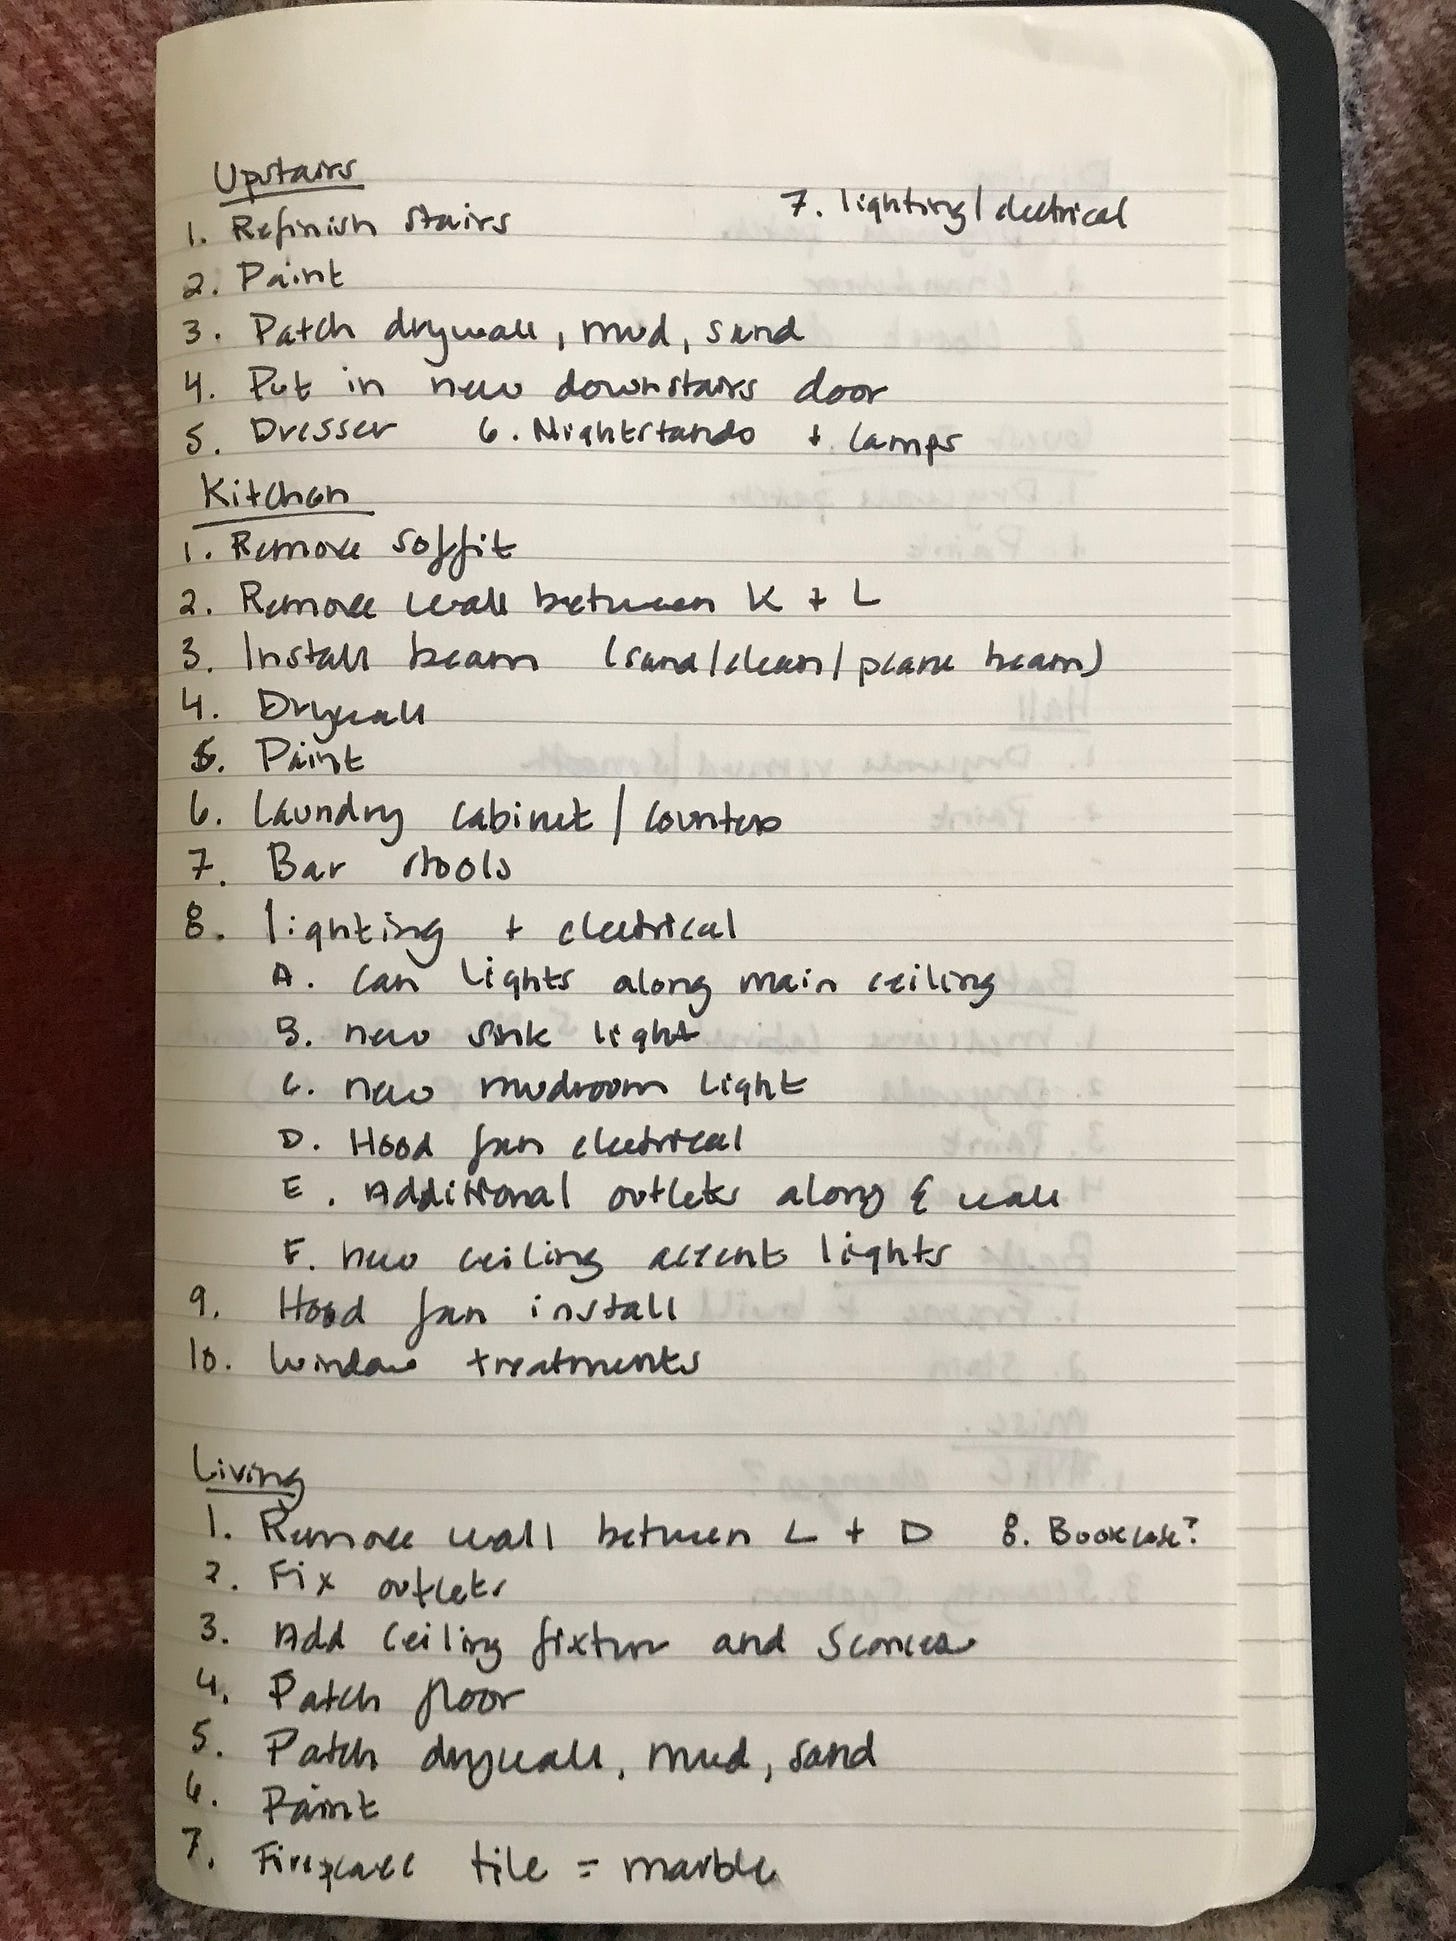 Upstairs
1. Refinish stairs
7. lighting/electrical
2. Paint
3. Patch drywall, mud, sand
4. Put in new downstairs door
5. Dresser 6. Nightstands + lamps
Kitchen
1. Remove soffit
2. Remove wall between K + L
3. Install beam (sand/clean/plane beam)
4. Drywall
5. Paint
6. Laundry cabinet/counters
7. Bar stools
8. lighting + electrical
A. can lights along main ceiling
B. new sink light
C. new mudroom light
D. Hood fan electrical
E. Additional outlets along E wall
F. new ceiling accent lights
9. Hood fan install
10. Window treatments
Living
1. Remove wall between L + D 8. Bookcase?
2. Fix outlets
3. Add ceiling fixture and Sconces
4. Patch floor
5. Patch drywall, mud, sand
6. Paint
7. Fireplace tile = marble